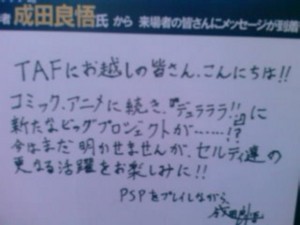 者 成田良悟氏 から 来場者の皆さんにメッセージが到着
TAFにお越しの皆さん、こんにちは!!
コミック、アニメに続き、『デュラララ!!』に
新たなビッグプロジェクトが……!?
今はまだ明かせませんが、セルティ達の
更なる活躍をお楽しみに!!
PSPをプレイしながら
成田良悟